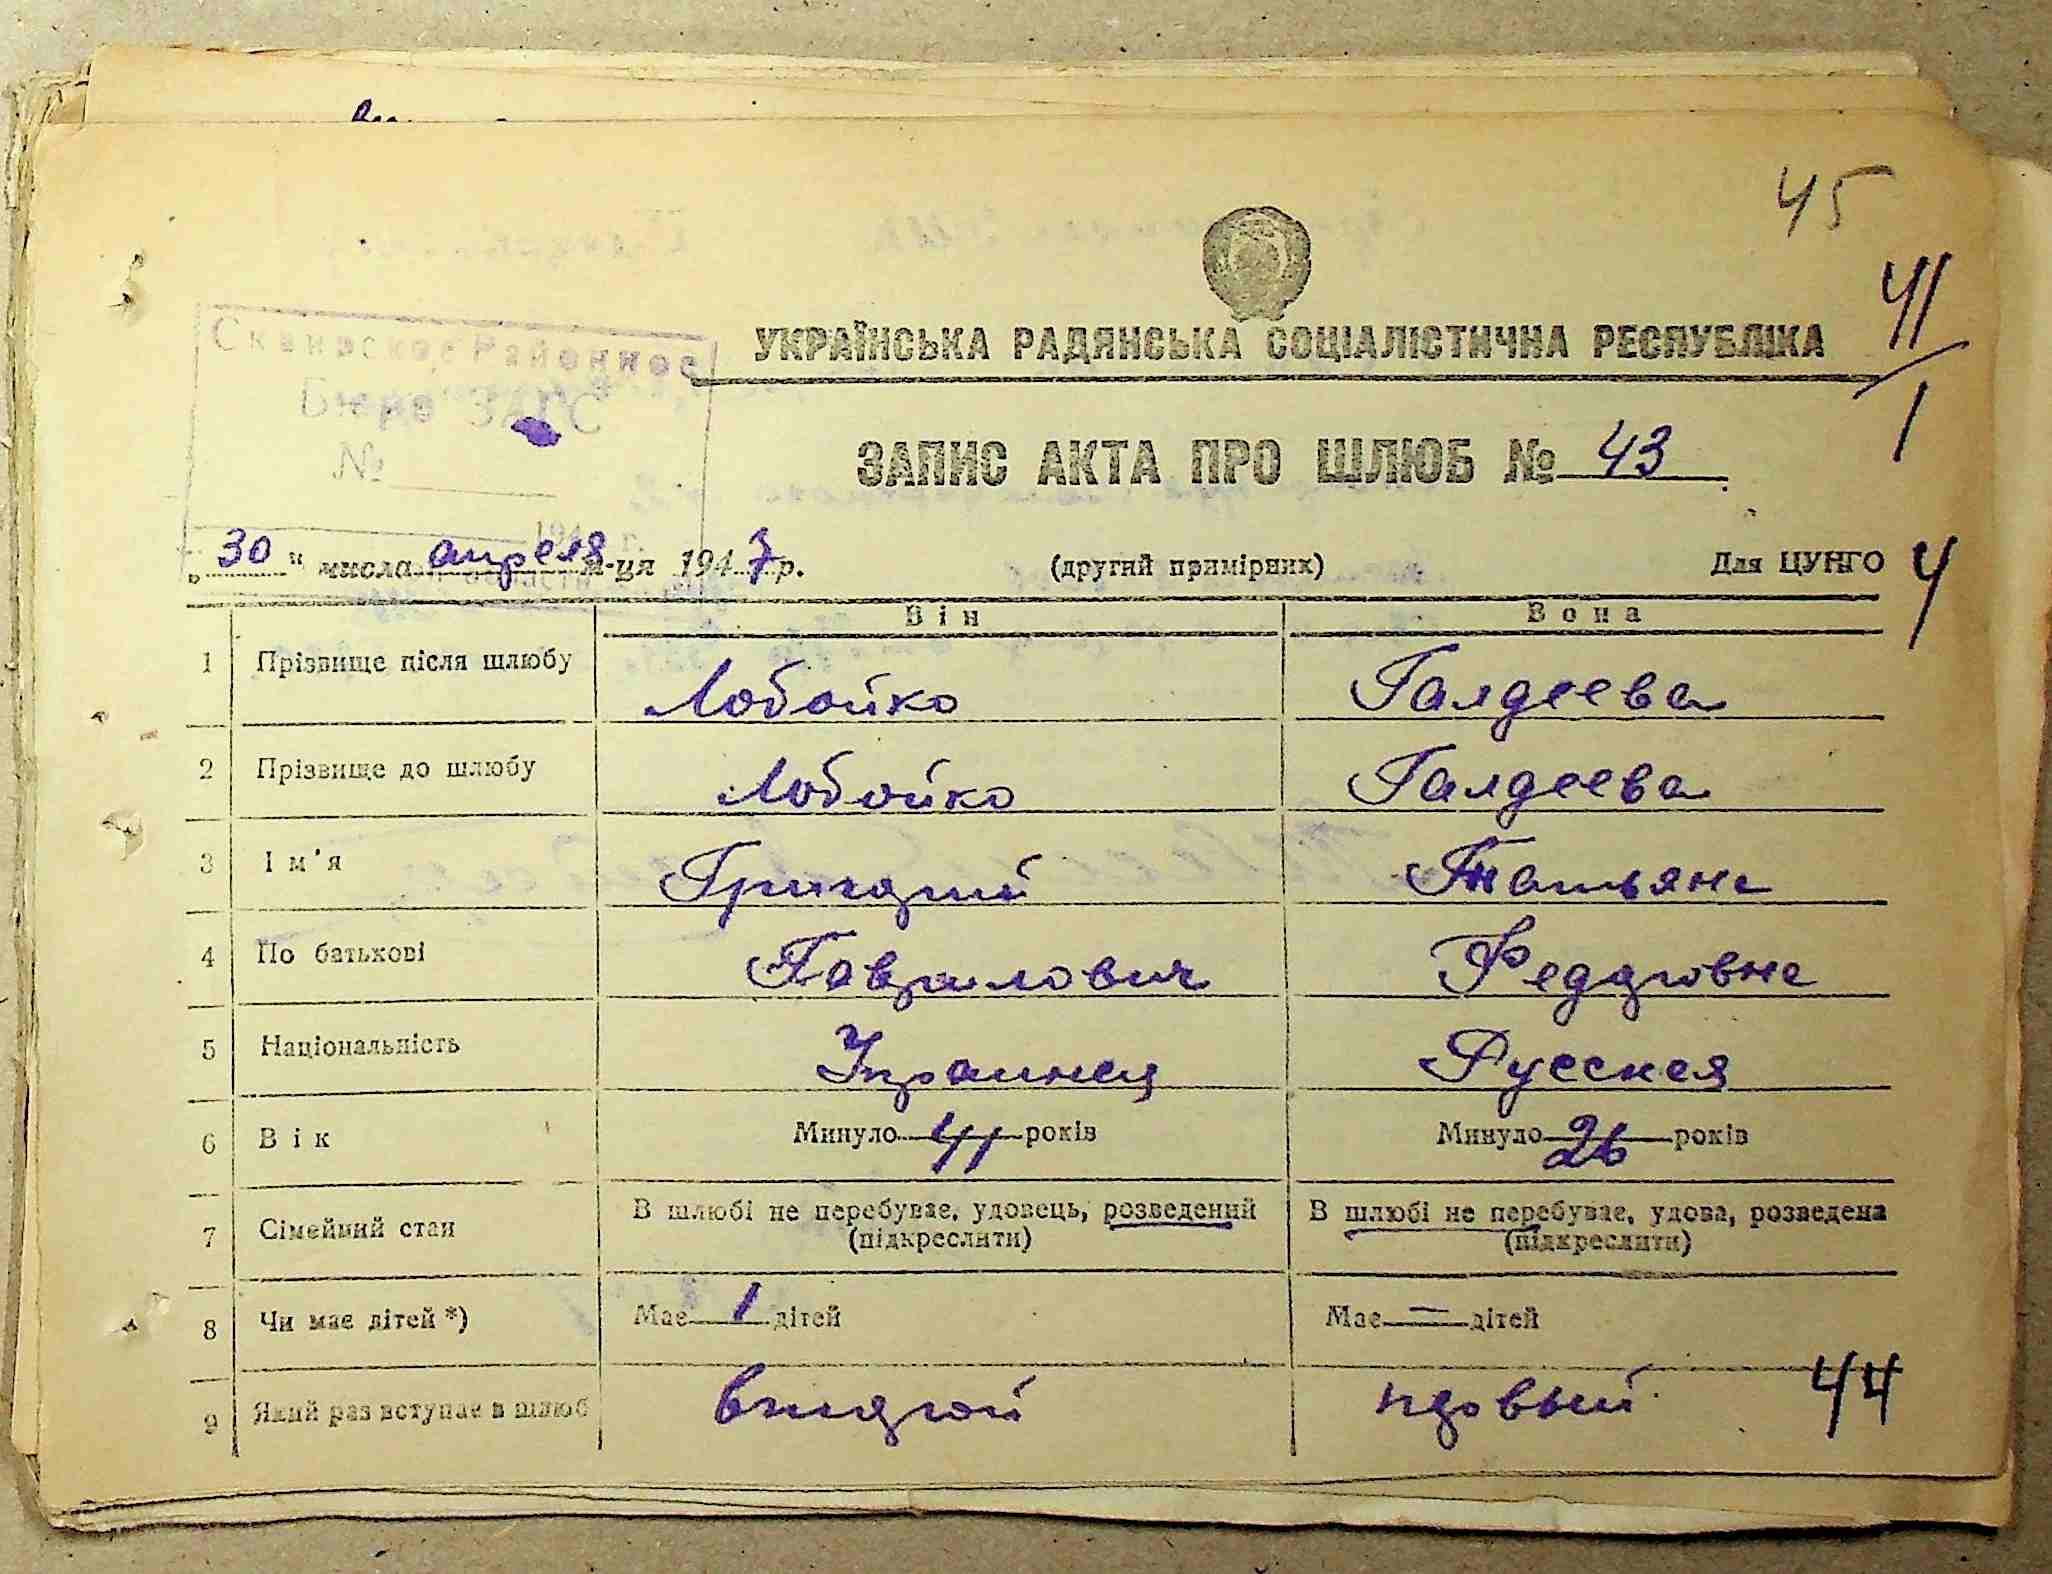 45
41
1
УКРАЇНСЬКА РАДЯНСЬКА СОЦІАЛІСТИЧНА РЕСПУБЛІКА
Районное
Бюро ЗАГС
№
ЗАПИС АКТА ПРО ШЛЮБ № 43
„30" числа апреля м-ця 1947 р. (другий примірник) Для ЦУНГО 4
Він Вона
1 Прізвище після шлюбу Лобойко Галдеева
2 Прізвище до шлюбу Лобойко Галдеева
3 Ім'я Григорий Татьяна
4 По батькові Гаврилович Федоровна
5 Національність Украинец Русская
6 Вік Минуло 41 років Минуло 26 років
7 Сімейний стан В шлюбі не перебуває, удовець, розведений В шлюбі не перебуває, удова, розведена
(підкреслити) (підкреслити)
8 Чи має дітей *) Має 1 дітей Має — дітей
9 Який раз вступає в шлюб второй первый 44